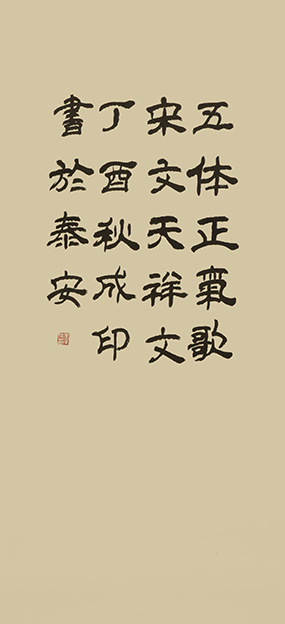 五体正氣歌
宋文天祥文
丁酉秋成印
書於泰安